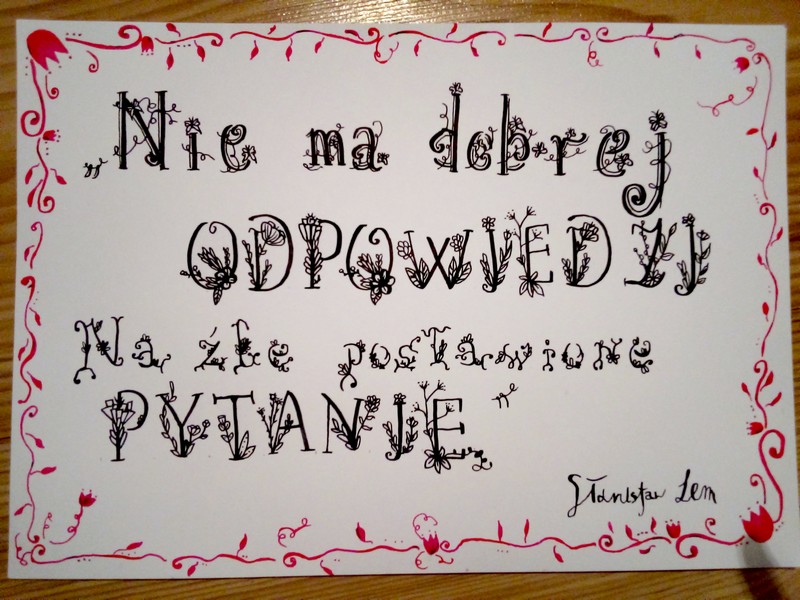 „Nie ma dobrej
ODPOWIEDZI
Na źle postawione
PYTANIE.”
Stanisław Lem